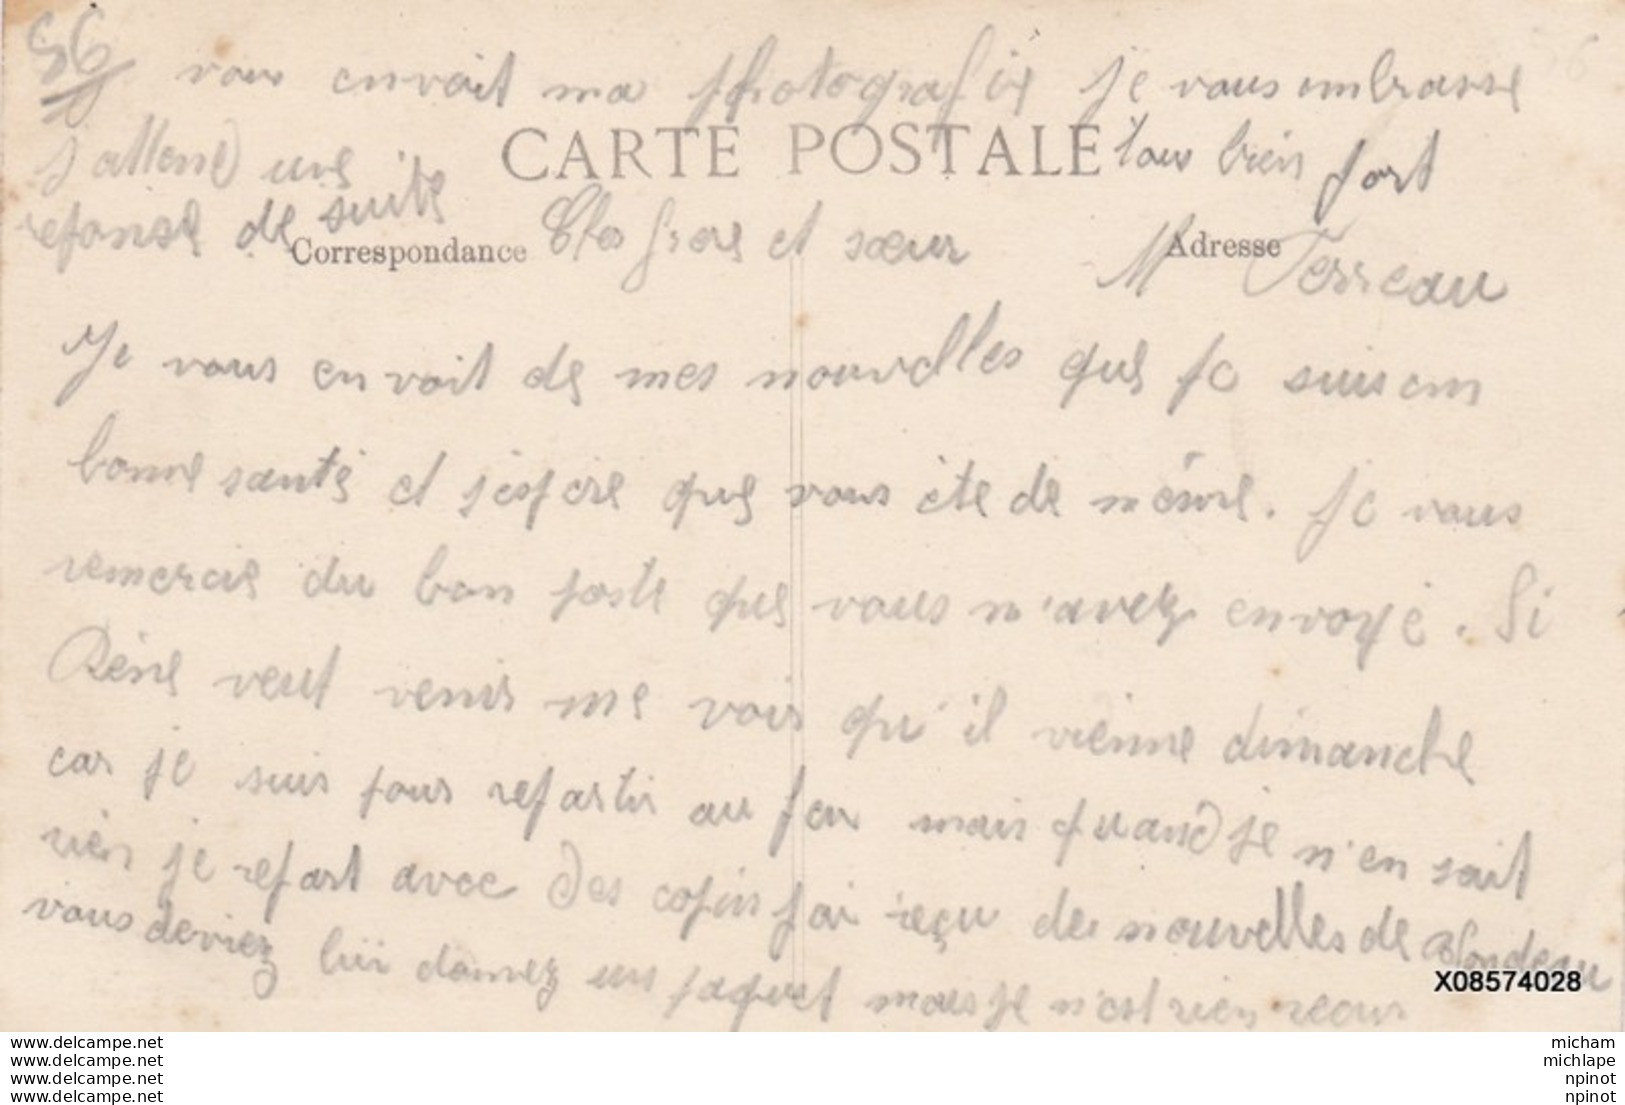 56
vous envoit ma photografie je vous embrasse
tous bien fort
j attend une
reponse de suite
CARTE POSTALE
Correspondance
Adresse
Chers frere et sœur
M Terreau
Je vous envoit de mes nouvelles que je suis em
bonne santé et j'espère que vous ète de même. Je vous
remercie du bon poste que vous m'avez envoyé. Si
Réné veut venir me voir qu'il vienne dimanche
car je suis pour repartir au feu mais quand je n'en sait
rien je repart avec des copin j'ai reçu des nouvelles de Blondeau
vous deviez lui donnez un paquet mais je n'est rien recu
X08574028
www.delcampe.net
www.delcampe.net
www.delcampe.net
www.delcampe.net
micham
michlape
npinot
npinot